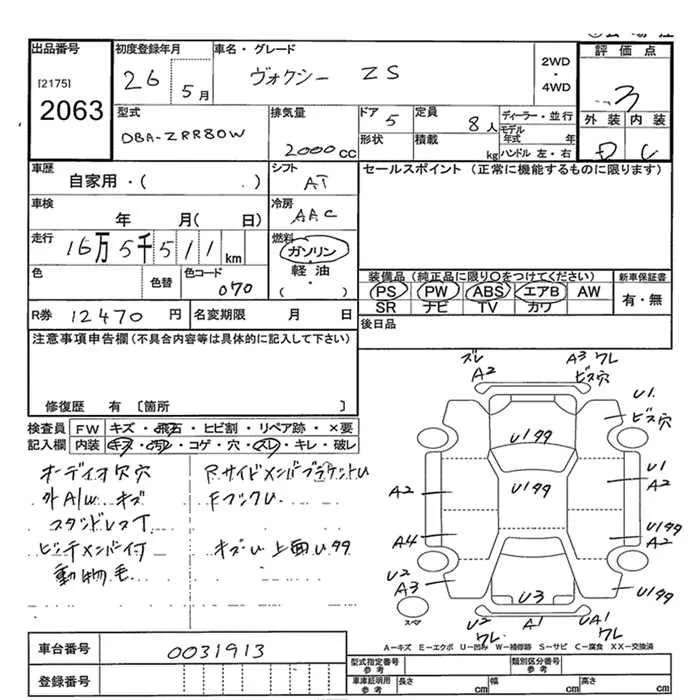 出品番号
[2175]
2063
初度登録年月
26 5月
車名・グレード
ヴォクシー ZS
2WD
・
4WD
評価点
3
外装 内装
D C
型式
DBA-ZRR80W
排気量
2000cc
ドア 5
形状
定員 8人
積載 kg
ディーラー・並行
モデル年式 年
ハンドル 左・右
車歴
自家用・( .)
シフト
AT
セールスポイント (正常に機能するものに限ります)
車検
年 月( 日)
冷房
AAC
走行
16万5千511km
燃料
ガソリン
軽油
(・)
色
色替
色コード
070
装備品(純正品に限り○をつけてください)
PS PW ABS エアB AW
SR ナビ TV カワ
新車保証書
有・無
R券 12470円
名変期限 月 日
後日品
注意事項申告欄(不具合内容等は具体的に記入して下さい)
修復歴 有 〔箇所 〕
検査員
記入欄
FW キズ・飛石・ヒビ割・リペア跡・×要
内装 キズ・汚レ・コゲ・穴・スレ・キレ・破レ
オーディオ欠穴
外A/W キズ
スタンドレスT
ヒッチメンバー付
動物毛
Fサイドメンバーブラケットu
FフックU
キズい上面u99
ズレ
A2
A3 ワレ
ビス穴
U1
ビス穴
U199
U199
A2
U1
A2
A4
U199
A2
U2
A3
U199
U3
スペア
U2
ワレ
A1
UA1
ワレ
A-キズ E-エクボ U-凹み W-補修跡 S-サビ C-腐食 XX-交換済
車台番号
0031913
登録番号
型式指定番号
参考
類別区分番号
参考
車庫証明用
参考
長さ cm
幅 cm
高さ cm